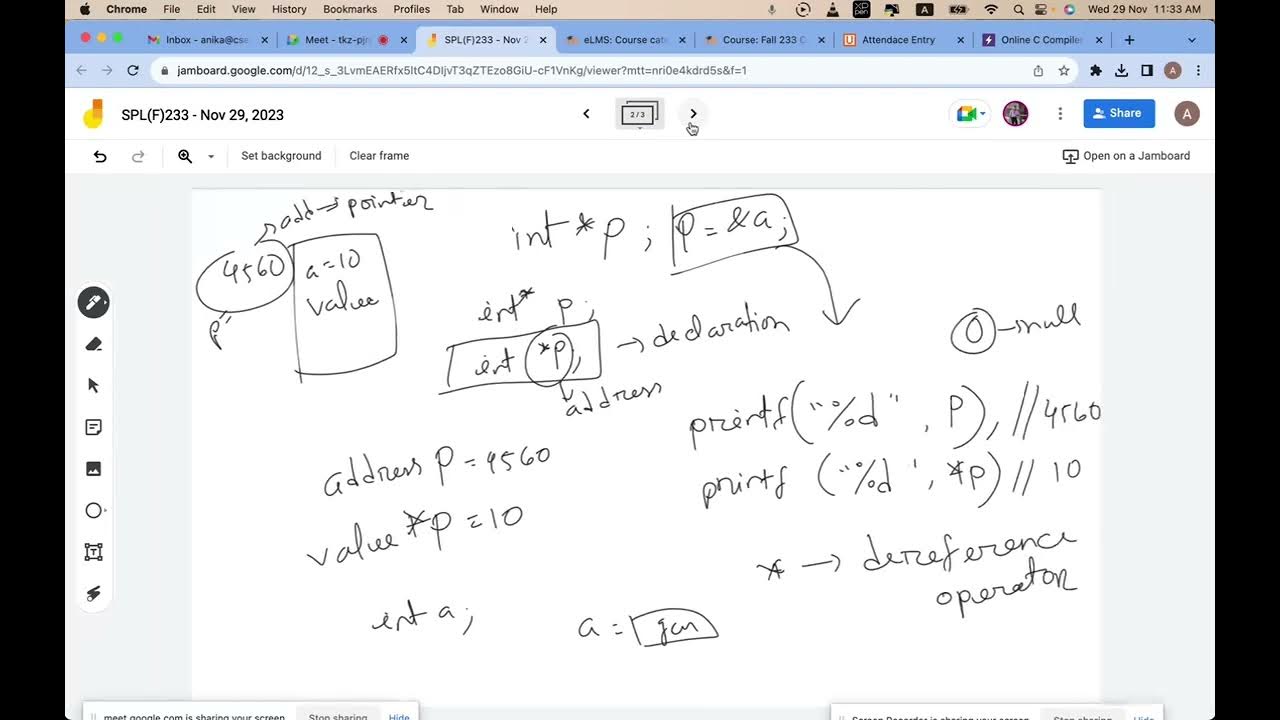 Chrome File Edit View History Bookmarks Profiles Tab Window Help
XP PEN
A
Wed 29 Nov 11:33 AM
Inbox - anika@cse
Meet - tkz-pjn
SPL(F)233 - Nov 2
eLMS: Course cate
Course: Fall 233 C
Attendace Entry
Online C Compiler
jamboard.google.com/d/12_s_3LvmEAERfx5ltC4DIjvT3qZTEzo8GiU-cF1VnKg/viewer?mtt=nri0e4kdrd5s&f=1
A
SPL(F)233 - Nov 29, 2023
2/3
Share
A
Set background
Clear frame
Open on a Jamboard
add → pointer
4560
a=10
value
p
int *p ; p = &a;
int* p ;
int *p; → declaration
address
0 - null
printf("%d", P), // 4560
printf ("%d", *p) // 10
address p = 4560
value *p = 10
* → dereference
operator
int a ;
a =
meet.google.com is sharing your screen.
Stop sharing
Hide
Screen Recorder is sharing your screen.
Stop sharing
Hide